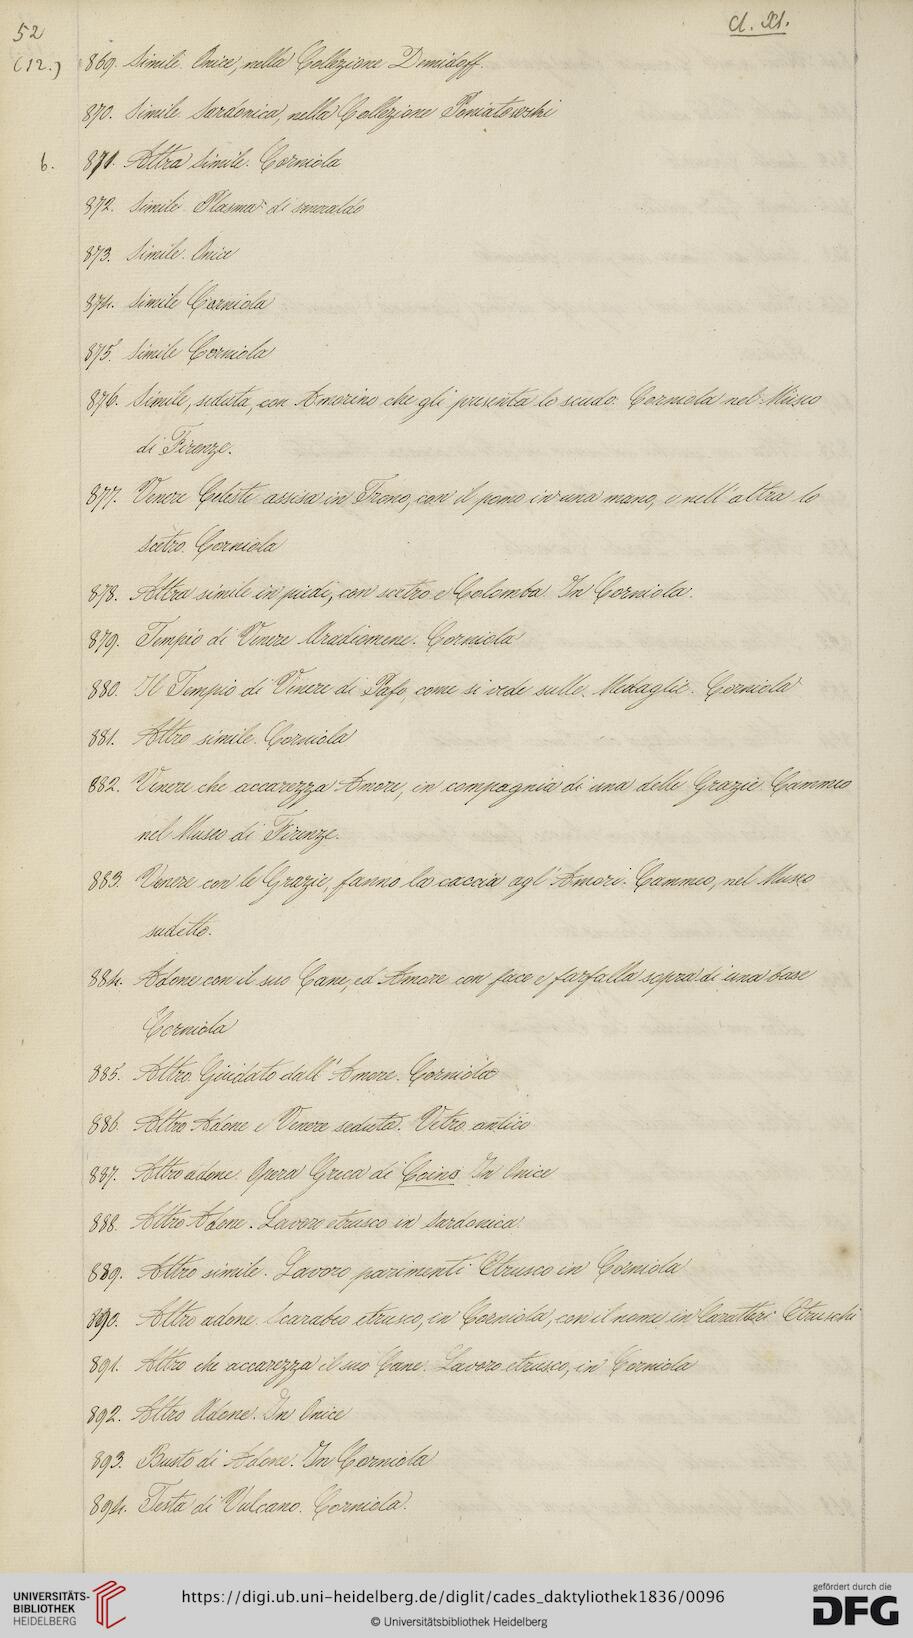 52
Cl. XI.
(12.)
869. Simile. Onice, nella Collezione Demidoff.
870. Simile. Sardonica, nella Collezione Poniatowski
6.
871. Altra Simile. Corniola
872. Simile. Plasma di smeraldo
873. Simile. Onice
874. Simile Corniola
875. Simile Corniola
876. Simile, seduta, con Amorino che gli presenta lo scudo. Corniola nel Museo
di Firenze.
877. Venere Celeste assisa in Trono, con il pomo in una mano, e nell' altra lo
Scetro. Corniola
878. Altra simile in piedi, con scetro e Colomba. In Corniola.
879. Tempio di Venere Aradiomene. Corniola
880. Il Tempio di Venere di Pafo, come si vede sulle Medaglie. Corniola
881. Altro simile. Corniola
882. Venere che accarezza Amore, in compagnia di una delle Grazie. Cammeo
nel Museo di Firenze.
883. Venere con le Grazie, fanno la caccia agl' Amori. Cammeo, nel Museo
sudetto.
884. Adone con il suo Cane, ed Amore con face e farfalla sopra di una base
Corniola
885. Altro. Guidato dall' Amore. Corniola
886. Altro Adone e Venere seduta. Vetro antico
887. Altro adone. Opera Greca di Coino. In Onice
888. Altro Adone. Lavoro etrusco in Sardonica.
889. Altro simile. Lavoro parimenti Etrusco in Corniola
890. Altro adone. Scarabeo etrusco, in Corniola, con il nome in Caratteri Etruschi
891. Altro che accarezza il suo Cane. Lavoro etrusco, in Corniola
892. Altro Adone. In Onice
893. Busto di Adone. In Corniola
894. Testa di Vulcano. Corniola.
UNIVERSITÄTS-
BIBLIOTHEK
HEIDELBERG
https://digi.ub.uni-heidelberg.de/diglit/cades_daktyliothek1836/0096
© Universitätsbibliothek Heidelberg
gefördert durch die
DFG